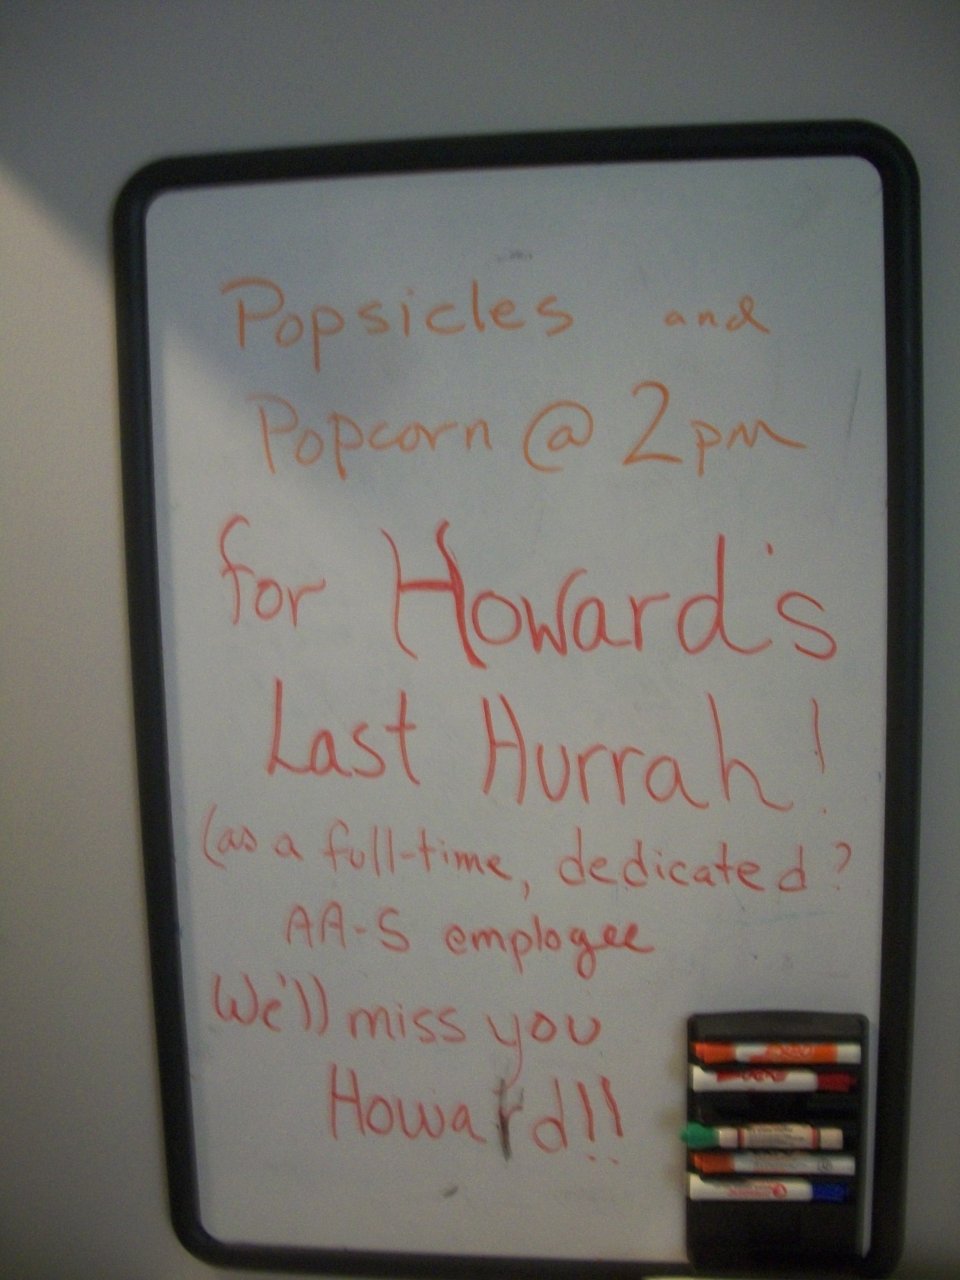 Popsicles and
Popcorn @ 2pm
for Howard's
Last Hurrah!
(as a full-time, dedicated?
AA-S employee
We'll miss you
Howard!!